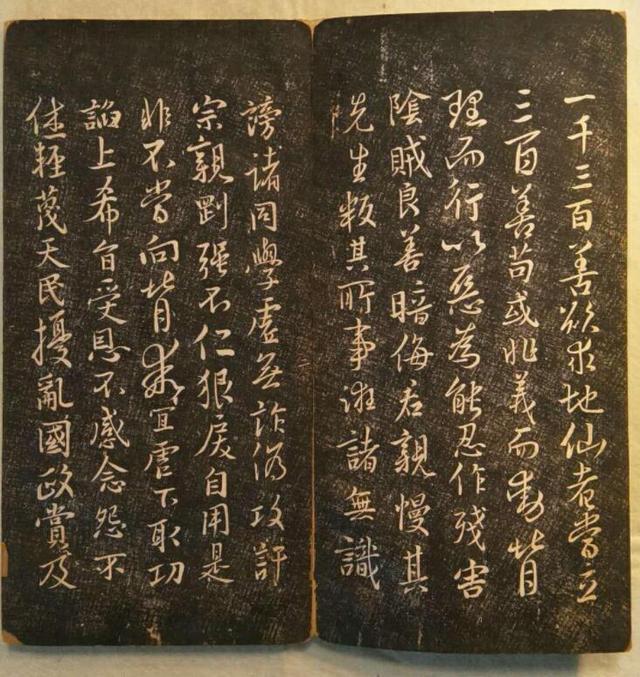 一千三百善欲求地仙者當立
三百善苟或非義而動背
理而行以惡為能忍作殘害
陰賊良善暗侮君親慢其
先生叛其所事誑諸無識
謗諸同學虛無詐偽攻訐
宗親剛强不仁狠戾自用是
非不當向背乖宜虐下取功
諂上希旨受恩不感念怨不
休輕蔑天民擾亂國政賞及